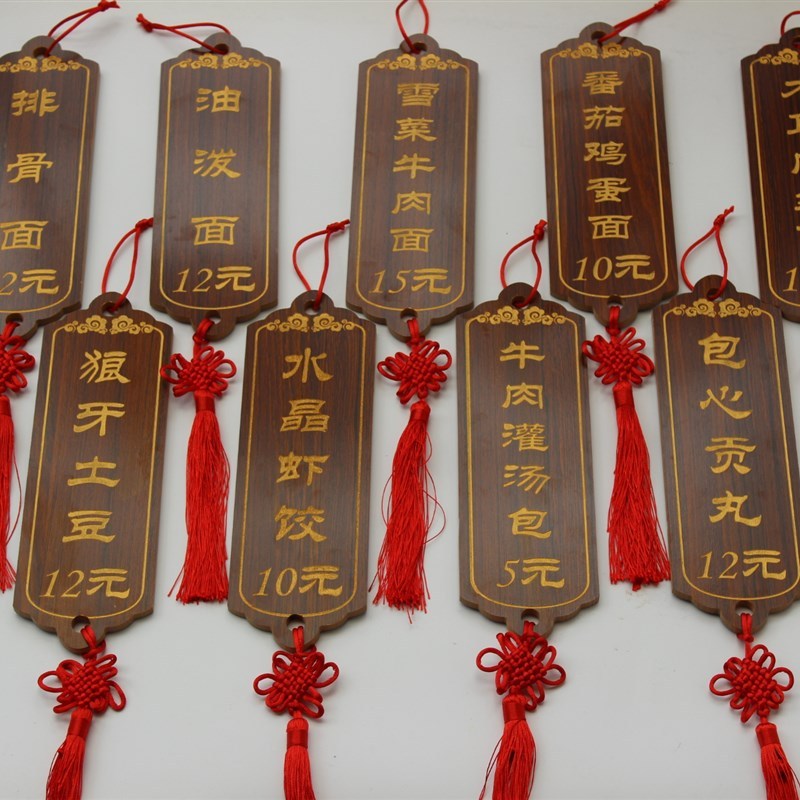 排骨面
2元
油泼面
12元
雪菜牛肉面
15元
番茄鸡蛋面
10元
狼牙土豆
12元
水晶虾饺
10元
牛肉灌汤包
5元
包心贡丸
12元